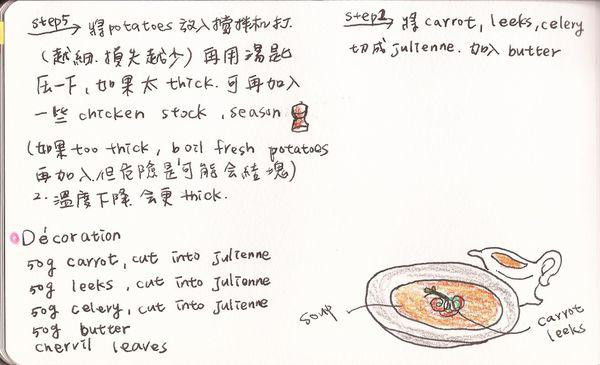 step5 → 將potatoes 放入攪拌机打
(越細.損失越少) 再用湯匙
压一下, 如果太 thick. 可再加入
一些 chicken stock , season
(如果 too thick , boil fresh potatoes
再加入.但危險是可能会結塊)
2. 溫度下降 会更 thick.
Décoration
50g carrot, cut into julienne
50g leeks , cut into julienne
50g celery, cut into julienne
50g butter
chervil leaves
step1 → 將 carrot, leeks, celery
切成 julienne. 加入 butter
soup
carrot
leeks